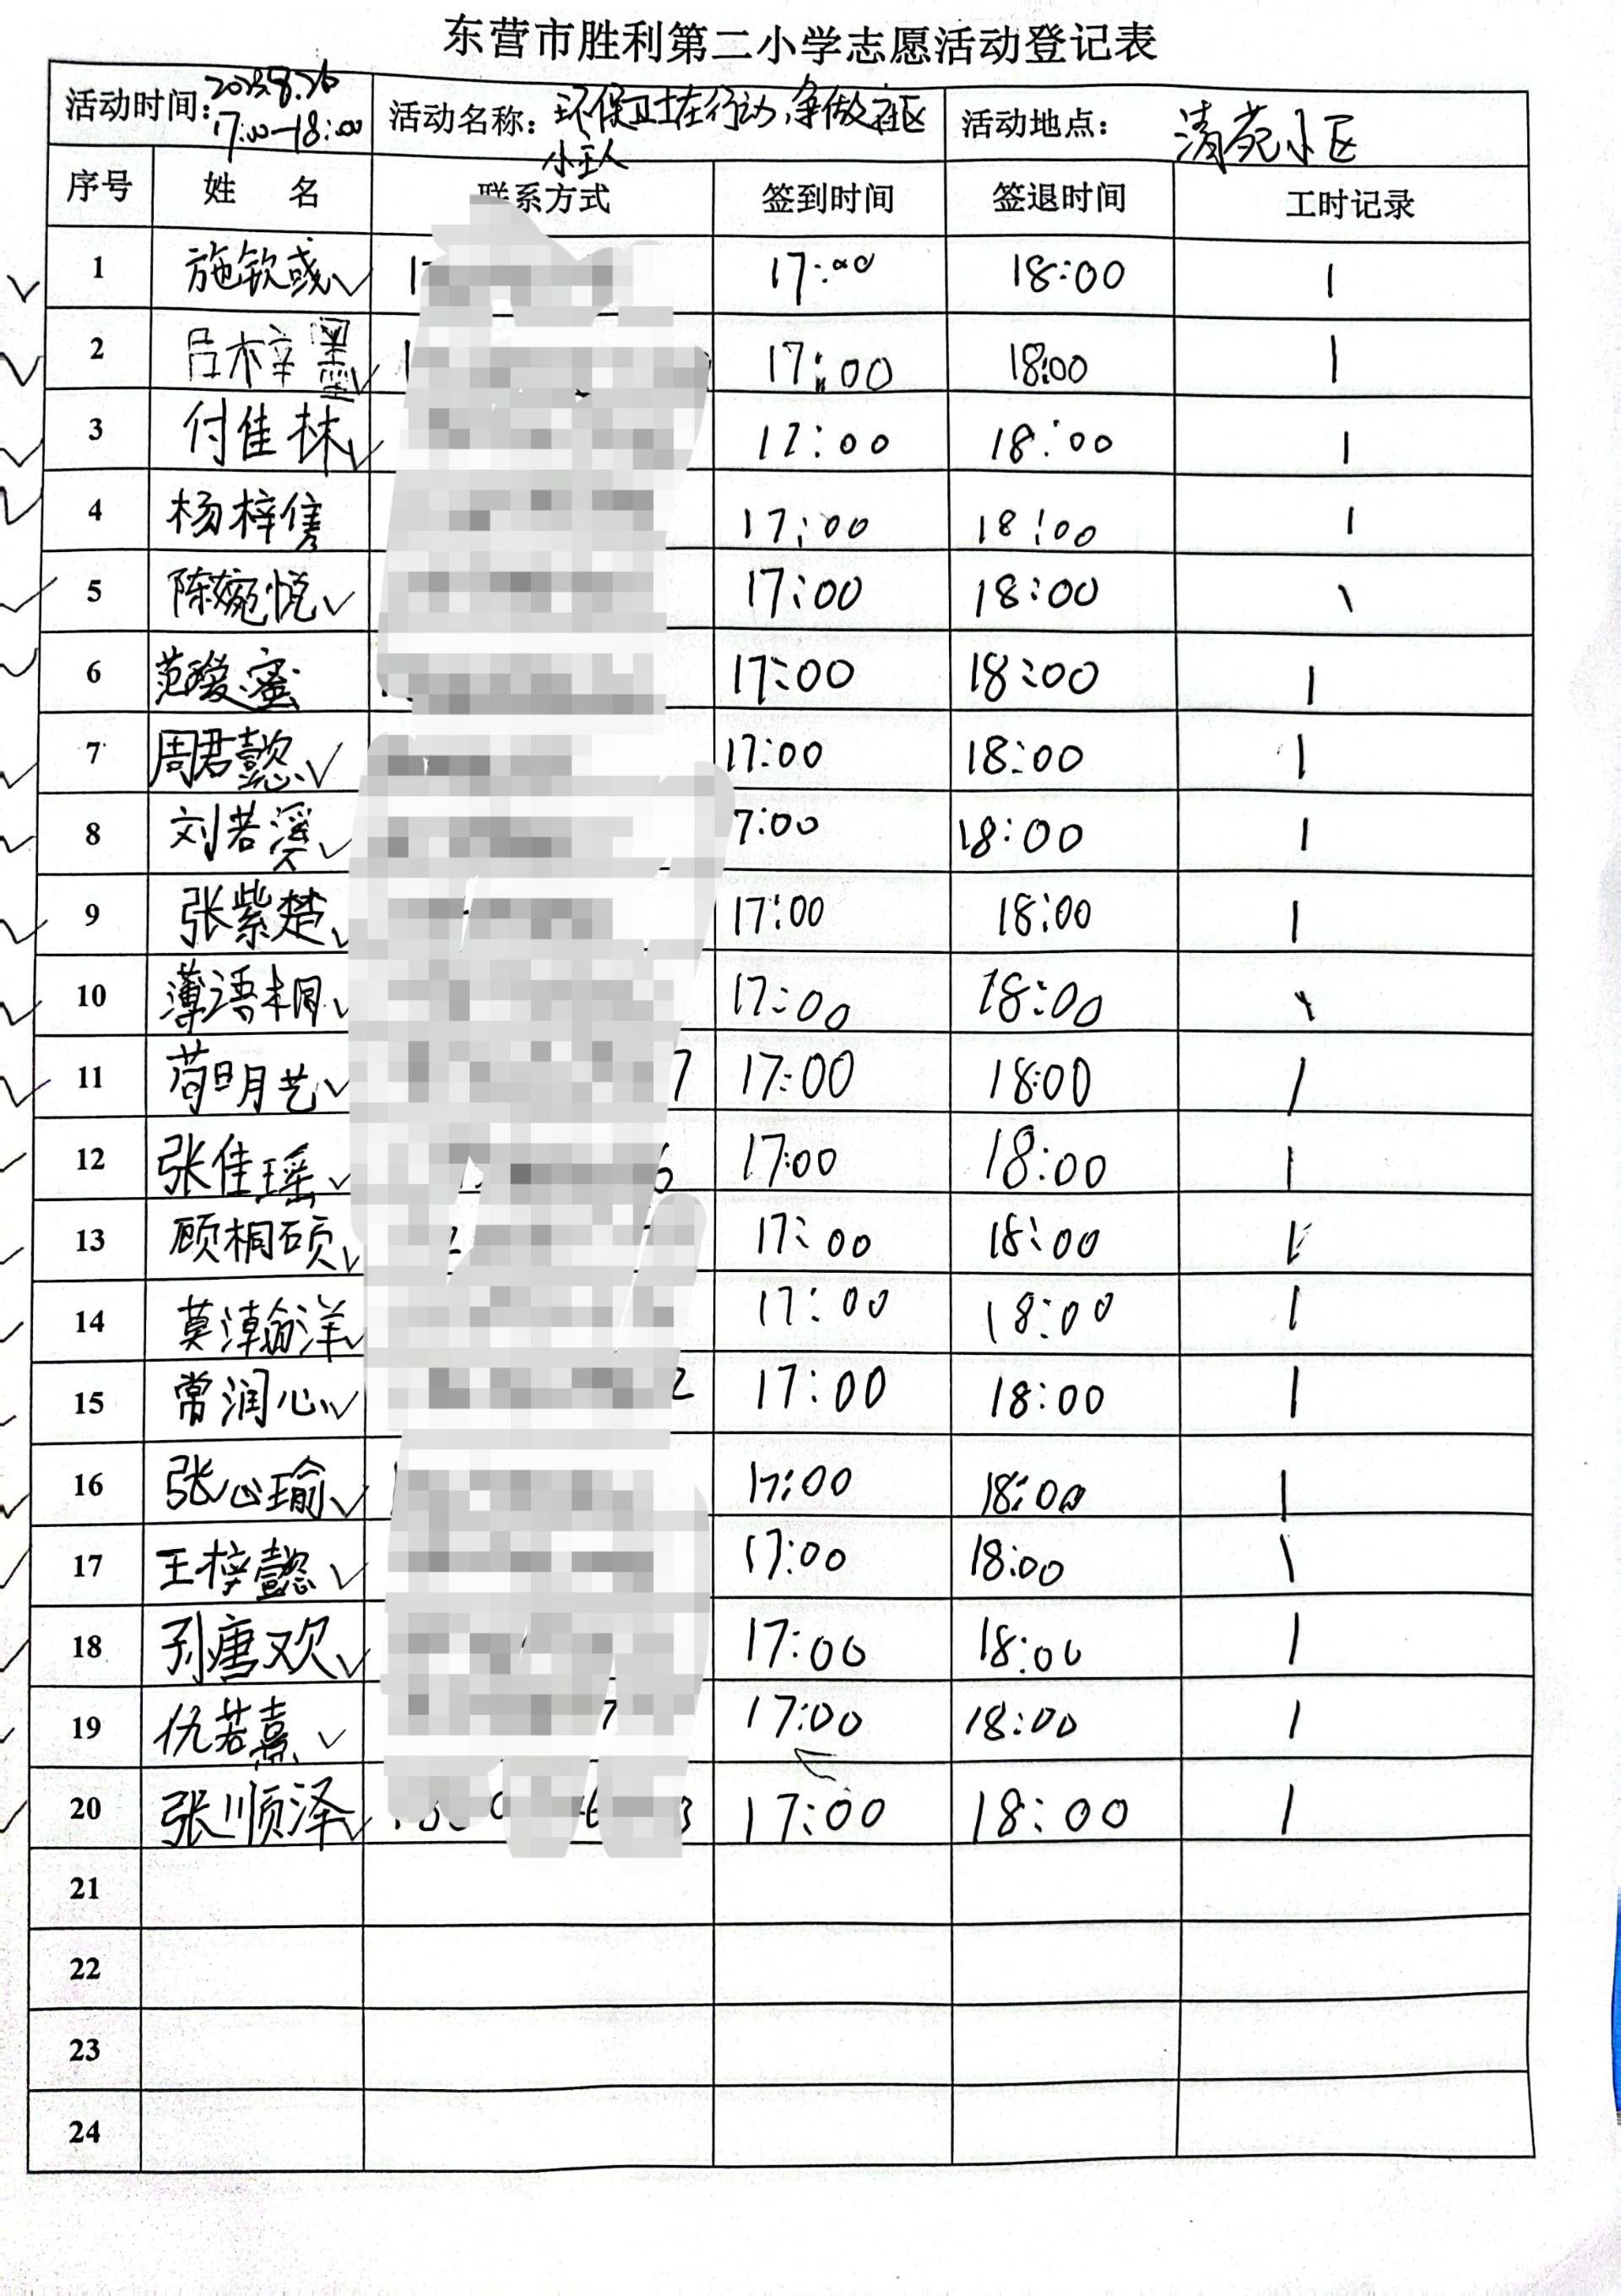 东营市胜利第二小学志愿活动登记表
活动时间: 2023.8.26 17:00-18:00 活动名称: 环保卫士在行动,争做社区小主人 活动地点: 清苑小区
序号 姓 名 联系方式 签到时间 签退时间 工时记录
1 施钦彧 17:00 18:00 1
2 吕梓墨 17:00 18:00 1
3 付佳抹 17:00 18:00 1
4 杨梓隽 17:00 18:00 1
5 陈婉悦 17:00 18:00 1
6 范瑷蜜 17:00 18:00 1
7 周君懿 17:00 18:00 1
8 刘若溪 7:00 18:00 1
9 张紫楚 17:00 18:00 1
10 薄语桐 17:00 18:00 1
11 苟明艺 7 17:00 18:00 1
12 张佳瑶 6 17:00 18:00 1
13 顾桐硕 17:00 18:00 1
14 莫瀚洋 17:00 18:00 1
15 常润心 2 17:00 18:00 1
16 张心瑜 17:00 18:00 1
17 王梓懿 17:00 18:00 1
18 孙唐欢 17:00 18:00 1
19 仇若熹 7 17:00 18:00 1
20 张顺泽 17:00 18:00 1
21
22
23
24